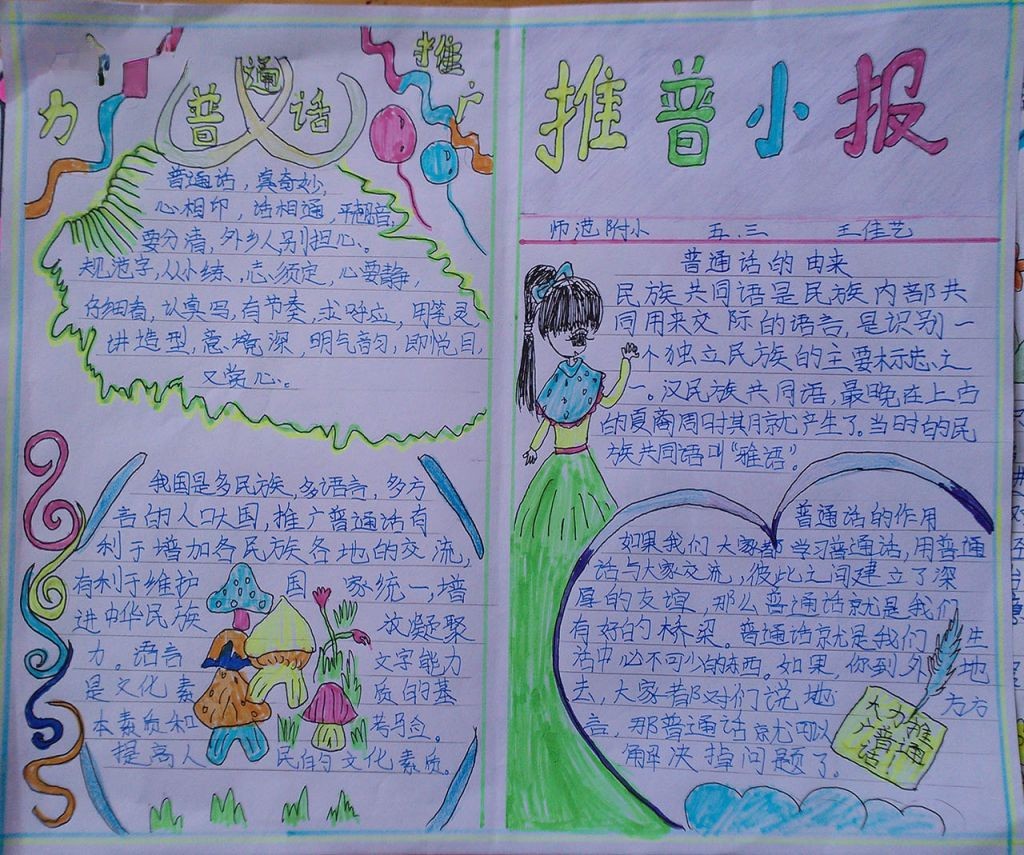 力
推
广
普通话
普通话，真奇妙，
心相印，话相通，平翘音，
要分清，外乡人，别担心。
规范字，从小练，志须定，心要静，
仔细看，认真吗，有节奏，求呼应，用笔灵，
讲造型，意境深，明气韵，即悦目，
又赏心。
我国是多民族，多语言，多方
言的人口大国，推广普通话有
利于增加各民族各地的交流，
有利于维护国家统一，增
进中华民族放凝聚
力。语言文字能力
是文化素质的基
本素质和考马佥。
提高人民的文化素质。
推普小报
师范附小 五.三 王佳艺
普通话的由来
民族共同语是民族内部共
同用来交际的语言，是识别一
个独立民族的主要标志之
一。汉民族共同语，最晚在上古
的夏商周时其月就产生了。当时的民
族共同语叫“雅语”。
普通话的作用
如果我们大家都学习普通话，用普通
话与大家交流，彼此之间建立了深
厚的友谊，那么普通话就是我们
有好的桥梁。普通话就是我们生
活中必不可少的东西。如果，你到外地
去，大家都对们说地方方
言，那普通话就可以
解决掉问题了。
大力推
广普通
话